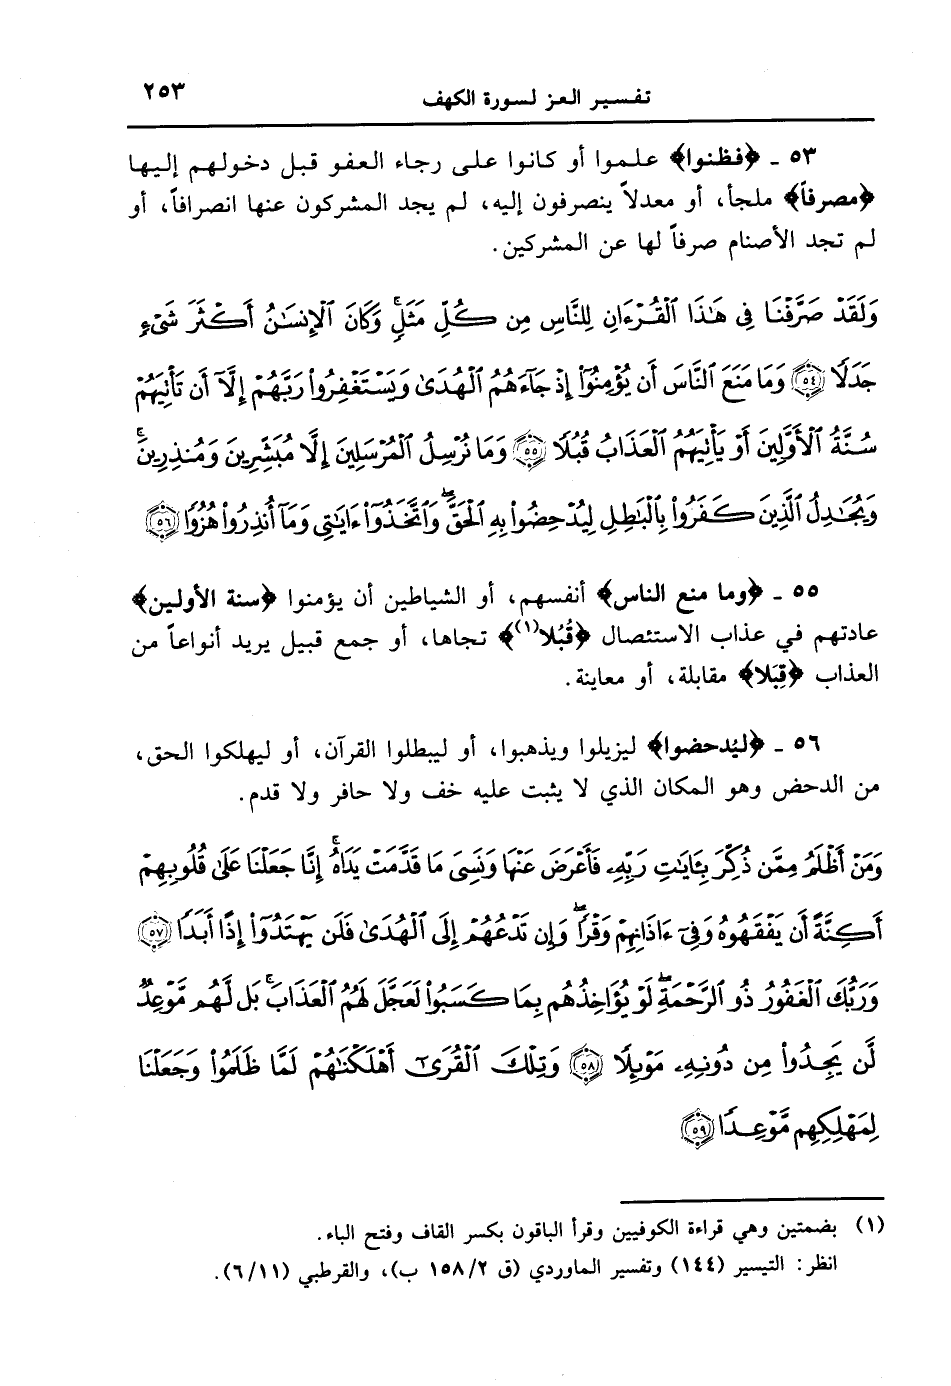 تفسير العز لسورة الكهف ٢٥٣
٥٣ ـ ﴿فظنوا﴾ علموا أو كانوا على رجاء العفو قبل دخولهم إليها
﴿مصرفاً﴾ ملجأ، أو معدلاً ينصرفون إليه، لم يجد المشركون عنها انصرافاً، أو
لم تجد الأصنام صرفاً لها عن المشركين.
وَلَقَدْ صَرَّفْنَا فِى هَٰذَا ٱلْقُرْءَانِ لِلنَّاسِ مِن كُلِّ مَثَلٍۢ ۚ وَكَانَ ٱلْإِنسَٰنُ أَكْثَرَ شَىْءٍ
جَدَلًا ٥٤ وَمَا مَنَعَ ٱلنَّاسَ أَن يُؤْمِنُوٓا۟ إِذْ جَآءَهُمُ ٱلْهُدَىٰ وَيَسْتَغْفِرُوا۟ رَبَّهُمْ إِلَّآ أَن تَأْتِيَهُمْ
سُنَّةُ ٱلْأَوَّلِينَ أَوْ يَأْتِيَهُمُ ٱلْعَذَابُ قُبُلًا ٥٥ وَمَا نُرْسِلُ ٱلْمُرْسَلِينَ إِلَّا مُبَشِّرِينَ وَمُنذِرِينَ ۚ
وَيُجَٰدِلُ ٱلَّذِينَ كَفَرُوا۟ بِٱلْبَٰطِلِ لِيُدْحِضُوا۟ بِهِ ٱلْحَقَّ ۖ وَٱتَّخَذُوٓا۟ ءَايَٰتِى وَمَآ أُنذِرُوا۟ هُزُوًا ٥٦
٥٥ ـ ﴿وما منع الناس﴾ أنفسهم، أو الشياطين أن يؤمنوا ﴿سنة الأولين﴾
عادتهم في عذاب الاستئصال ﴿قُبُلا(١)﴾ تجاها، أو جمع قبيل يريد أنواعاً من
العذاب ﴿قِبَلا﴾ مقابلة، أو معاينة.
٥٦ ـ ﴿ليُدحضوا﴾ ليزيلوا ويذهبوا، أو ليبطلوا القرآن، أو ليهلكوا الحق،
من الدحض وهو المكان الذي لا يثبت عليه خف ولا حافر ولا قدم.
وَمَنْ أَظْلَمُ مِمَّن ذُكِّرَ بِـَٔايَٰتِ رَبِّهِۦ فَأَعْرَضَ عَنْهَا وَنَسِىَ مَا قَدَّمَتْ يَدَاهُ ۚ إِنَّا جَعَلْنَا عَلَىٰ قُلُوبِهِمْ
أَكِنَّةً أَن يَفْقَهُوهُ وَفِىٓ ءَاذَانِهِمْ وَقْرًا ۖ وَإِن تَدْعُهُمْ إِلَى ٱلْهُدَىٰ فَلَن يَهْتَدُوٓا۟ إِذًا أَبَدًا ٥٧
وَرَبُّكَ ٱلْغَفُورُ ذُو ٱلرَّحْمَةِ ۖ لَوْ يُؤَاخِذُهُم بِمَا كَسَبُوا۟ لَعَجَّلَ لَهُمُ ٱلْعَذَابَ ۚ بَل لَّهُم مَّوْعِدٌ
لَّن يَجِدُوا۟ مِن دُونِهِۦ مَوْئِلًا ٥٨ وَتِلْكَ ٱلْقُرَىٰٓ أَهْلَكْنَٰهُمْ لَمَّا ظَلَمُوا۟ وَجَعَلْنَا
لِمَهْلِكِهِم مَّوْعِدًا ٥٩
(١) بضمتين وهي قراءة الكوفيين وقرأ الباقون بكسر القاف وفتح الباء.
انظر: التيسير (١٤٤) وتفسير الماوردي (ق ١٥٨/٢ ب)، والقرطبي (٦/١١).